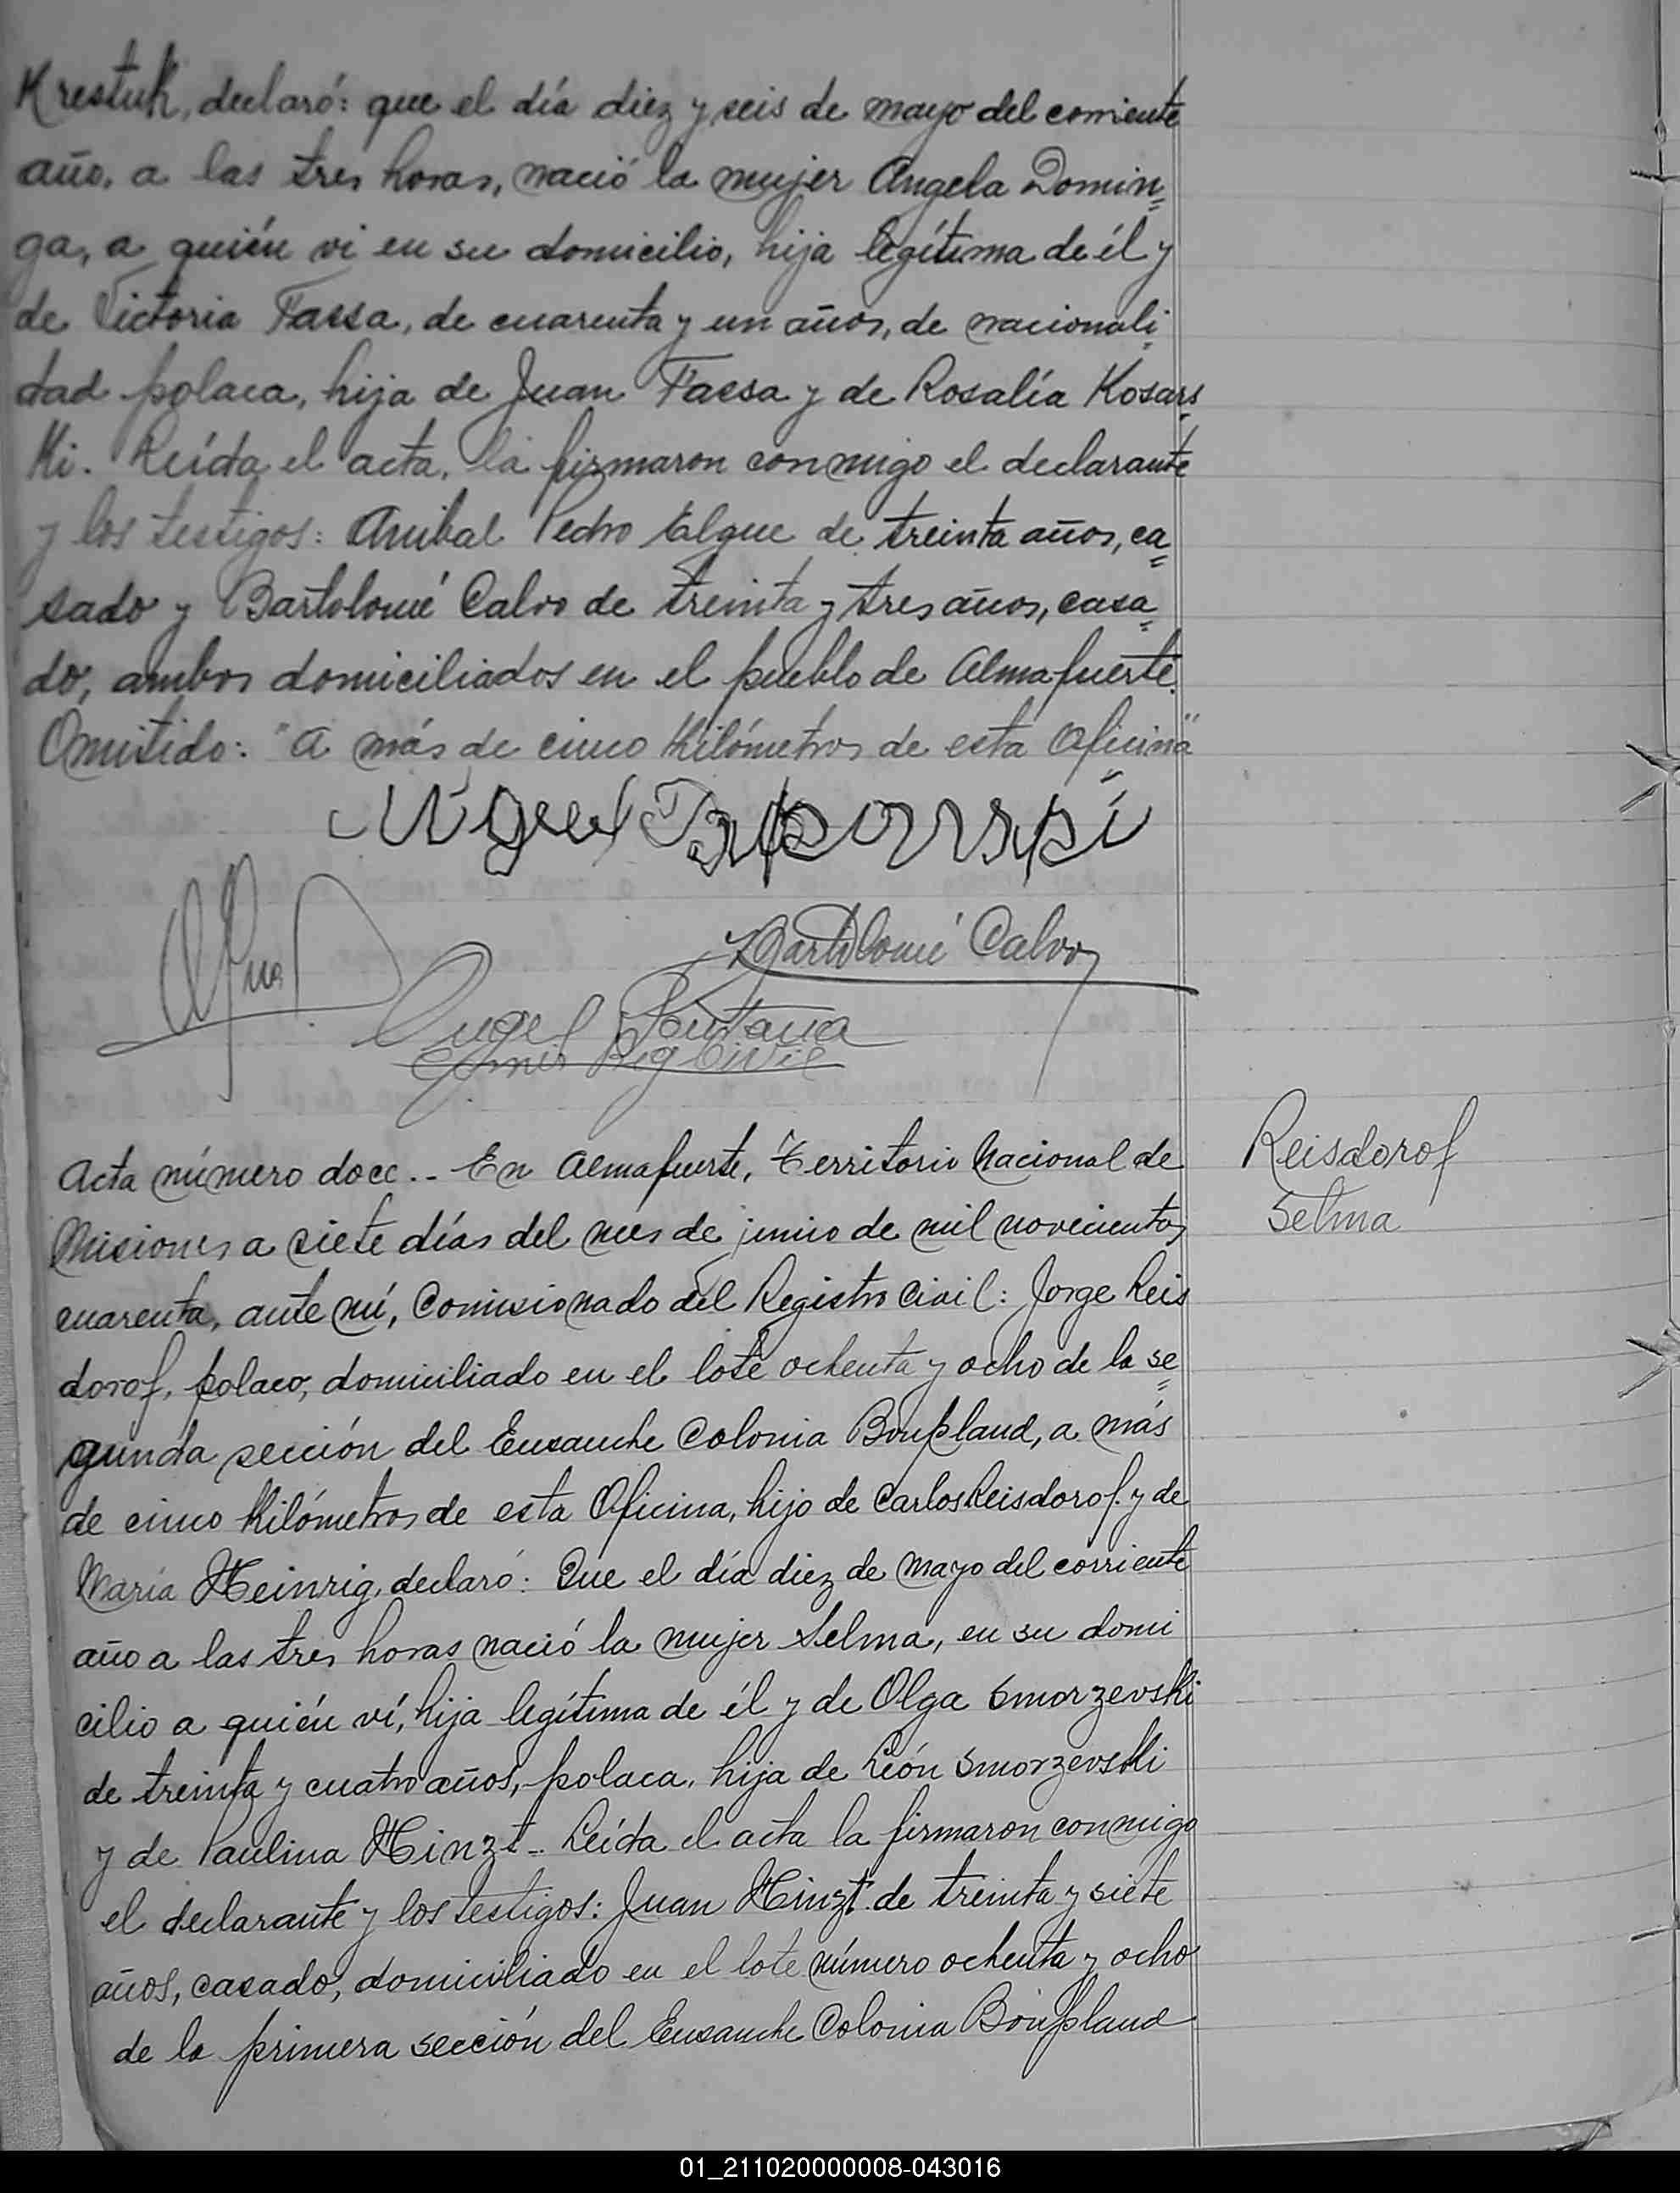 Krestuk, declaró: que el día diez y seis de mayo del corriente
año, a las tres horas, nació la mujer Angela Domin=
ga, a quién vi en su domicilio, hija legítima de él y
de Victoria Tassa, de cuarenta y un años, de nacionali=
dad polaca, hija de Juan Tassa y de Rosalía Kosars=
Ki. Leída el acta, la firmaron conmigo el declarante
y los testigos: Anibal Pedro Elgue de treinta años, ca=
sado y Bartolomé Calvo de treinta y tres años, casa=
do, ambos domiciliados en el pueblo de Almafuerte.
Omitido: "A más de cinco Kilómetros de esta Oficina"
Bartolomé Calvo
Angel
Reg Civil
Acta número doce.-- En Almafuerte, Territorio Nacional de
Misiones a siete días del mes de junio de mil novecientos
cuarenta, ante mí, Comisionado del Registro Civil: Jorge Reis
dorof, polaco, domiciliado en el lote ochenta y ocho de la se=
gunda sección del Ensanche Colonia Bonpland, a más
de cinco Kilómetros de esta Oficina, hijo de Carlos Reisdorof y de
María Heinrig, declaró: Que el día diez de Mayo del corriente
año a las tres horas nació la mujer Selma, en su domi
cilio a quién ví, hija legítima de él y de Olga Smorzevski
de treinta y cuatro años, polaca, hija de León Smorzevski
y de Paulina Hinzt.- Leída el acta la firmaron conmigo
el declarante y los testigos: Juan Hinzt de treinta y siete
años, casado, domiciliado en el lote número ochenta y ocho
de la primera sección del Ensanche Colonia Bonpland
Reisdorof
Selma
01_211020000008-043016